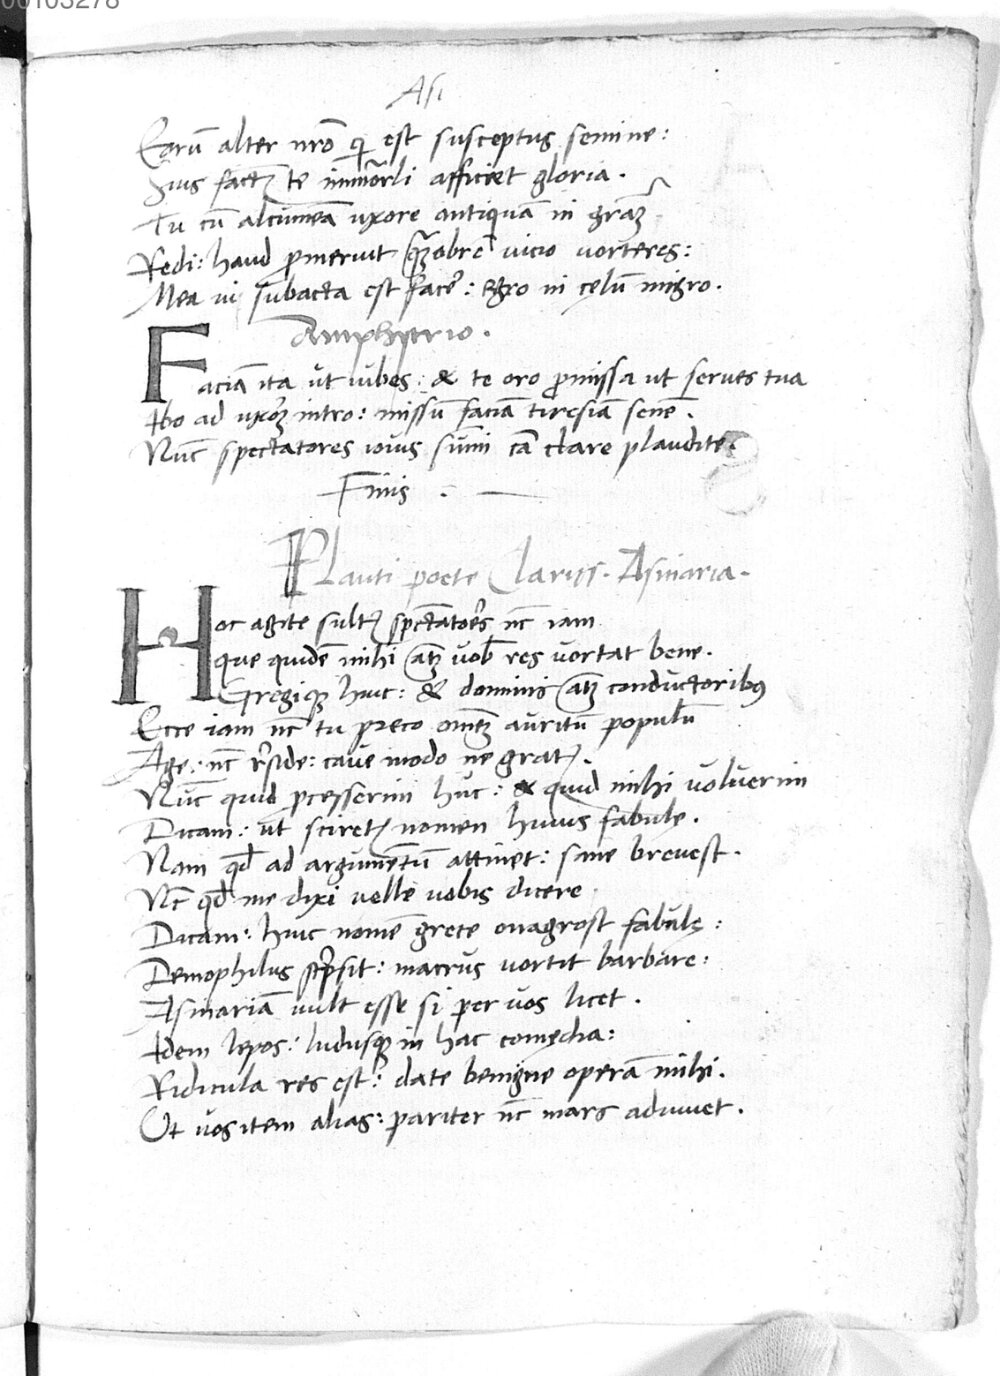 00103278
Asi
Earū alter nrō qi est susceptus semine:
Suis factꝫ te immōrli afficiet gloria.
Tu cū alcumeā uxore antiquā in grāꝫ
Redi: haud ꝓmeruit qꝫobrē uicio uorteres:
Mea ui subacta est facē: Ego in cęlū migro.
Amphitrio.
Faciā ita ut iubes: & te oro ꝓmissa ut serues tua
Ibo ad uxōꝫ intro: missū faciā tiresiā senē.
Nūc spectatores iouis sūmi cā clare plaudite.
Finis.
Plauti poete Clariss. Asinaria.
Hoc agite sultꝫ spectatorēs nc̄ iam
que quidē mihi atqꝫ uob̄ res uortat bene.
Gregiqꝫ huic: & dominis atqꝫ conductoribus
Ecce iam nc̄ tu preco omēꝫ auritū populū
Age: nc̄ r̄side: caue modo ne gratꝫ.
Nūc quid ꝓcesserim huc: & quid mihi uoluerim
Dicam: ut sciretꝫ nomen huius fabulę.
Nam qd̄ ad argumētū attinet: sane breuest.
Nc̄ qd̄ me dixi uelle uobis dicere
Dicam: huic nomē grece onagrost fabulę:
Demophilus sc̄psit: macrus uortit barbare:
Asinariā uult esse si per uos licet.
Idem lepos: ludusqꝫ in hac comędia:
Ridicula res est: date benigne operā mihi.
Ut uos item alias: pariter nc̄ mars adiuuet.